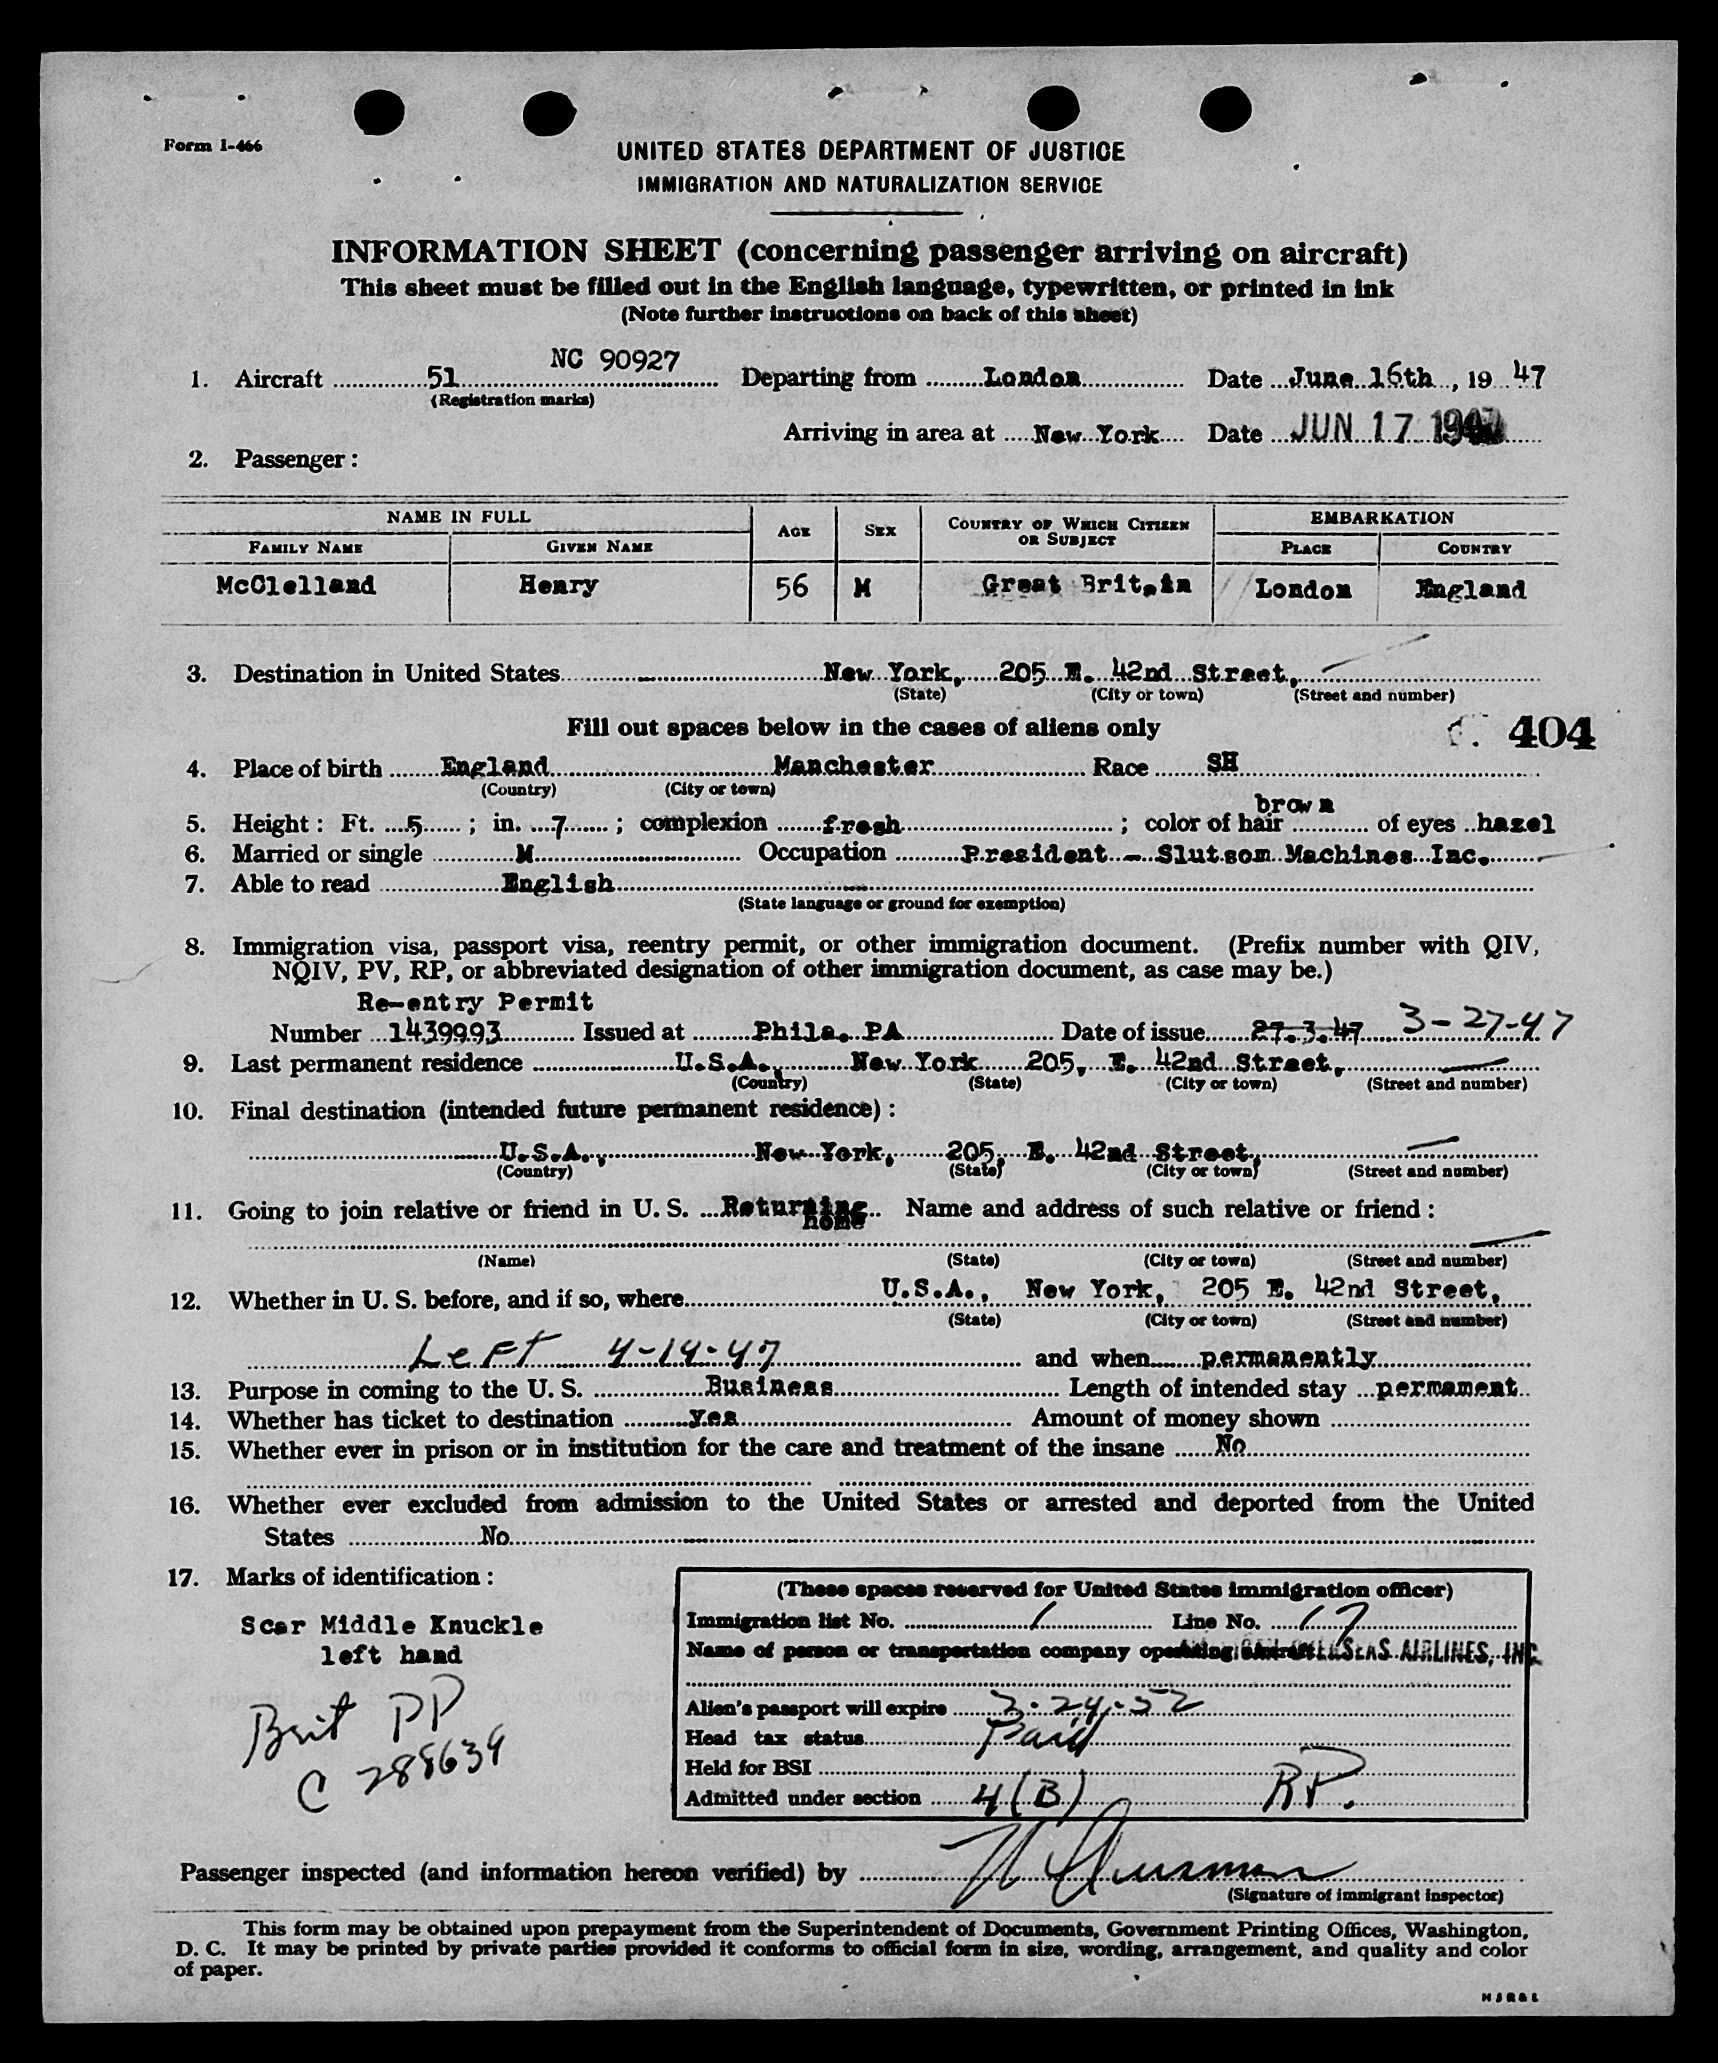 Form I-466
UNITED STATES DEPARTMENT OF JUSTICE
IMMIGRATION AND NATURALIZATION SERVICE
INFORMATION SHEET (concerning passenger arriving on aircraft)
This sheet must be filled out in the English language, typewritten, or printed in ink
(Note further instructions on back of this sheet)
1. Aircraft 51 NC 90927 Departing from London Date June 16th, 19 47
(Registration marks)
Arriving in area at New York Date JUN 17 1947
2. Passenger:
NAME IN FULL AGE SEX COUNTRY OF WHICH CITIZEN OR SUBJECT EMBARKATION
FAMILY NAME GIVEN NAME PLACE COUNTRY
McClelland Henry 56 M Great Britain London England
3. Destination in United States New York, 205 E. 42nd Street,
(State) (City or town) (Street and number)
Fill out spaces below in the cases of aliens only
404
4. Place of birth England Manchester Race SH
(Country) (City or town)
5. Height: Ft. 5; in. 7; complexion fresh; color of hair brown of eyes hazel
6. Married or single M Occupation President - Slutsom Machines Inc.
7. Able to read English
(State language or ground for exemption)
8. Immigration visa, passport visa, reentry permit, or other immigration document. (Prefix number with QIV,
NQIV, PV, RP, or abbreviated designation of other immigration document, as case may be.)
Re-entry Permit
Number 1439993 Issued at Phila. PA Date of issue 27.3.47 3-27-47
9. Last permanent residence U.S.A., New York 205, E. 42nd Street,
(Country) (State) (City or town) (Street and number)
10. Final destination (intended future permanent residence):
U.S.A., New York, 205, E. 42nd Street,
(Country) (State) (City or town) (Street and number)
11. Going to join relative or friend in U. S. Returning home Name and address of such relative or friend:
(Name) (State) (City or town) (Street and number)
12. Whether in U. S. before, and if so, where U.S.A., New York, 205 E. 42nd Street,
(State) (City or town) (Street and number)
Left 4-14-47 and when permanently
13. Purpose in coming to the U. S. Business Length of intended stay permament
14. Whether has ticket to destination Yes Amount of money shown
15. Whether ever in prison or in institution for the care and treatment of the insane No
16. Whether ever excluded from admission to the United States or arrested and deported from the United
States No
17. Marks of identification:
Scar Middle Knuckle
left hand
Brit PP
C 288639
(These spaces reserved for United States immigration officer)
Immigration list No. 1 Line No. 17
Name of person or transportation company operating aircraft OVERSEAS AIRLINES, INC
Alien's passport will expire 3-24-52
Head tax status Paid
Held for BSI
Admitted under section 4(B) RP.
Passenger inspected (and information hereon verified) by
(Signature of immigrant inspector)
This form may be obtained upon prepayment from the Superintendent of Documents, Government Printing Offices, Washington,
D. C. It may be printed by private parties provided it conforms to official form in size, wording, arrangement, and quality and color
of paper.